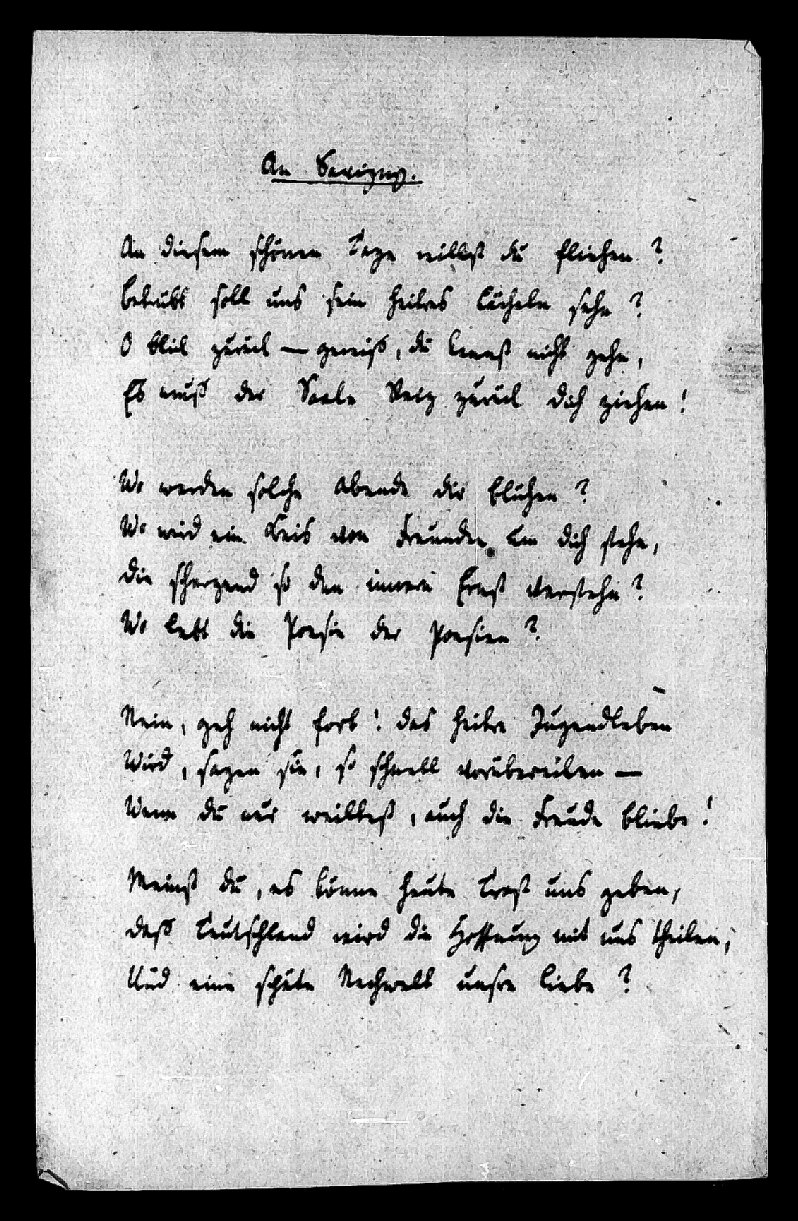 An Savigny.
An diesem schönen Tage willst du fliehen?
betrübt soll uns sein heitres Lächeln sehn?
O blick zurück — gewiß, du kannst nicht gehn,
Es muß der Seele Reiz zurück dich ziehen!
Wo werden solche Abende dir blühen?
Wo wird ein Kreis von Freunden um dich stehn,
die scherzend so den innern Ernst verstehn?
Wo lebt die Poesie der Poesien?
Nein, geh nicht fort! das heitre Jugendleben
Wird, sagen sie, so schnell vorübereilen —
Wenn du nur weiltest, auch die Freude bliebe!
Meinst du, es könne heute Trost uns geben,
daß Teutschland wird die Hoffnung mit uns theilen,
Und eine späte Nachwelt unsre Liebe?